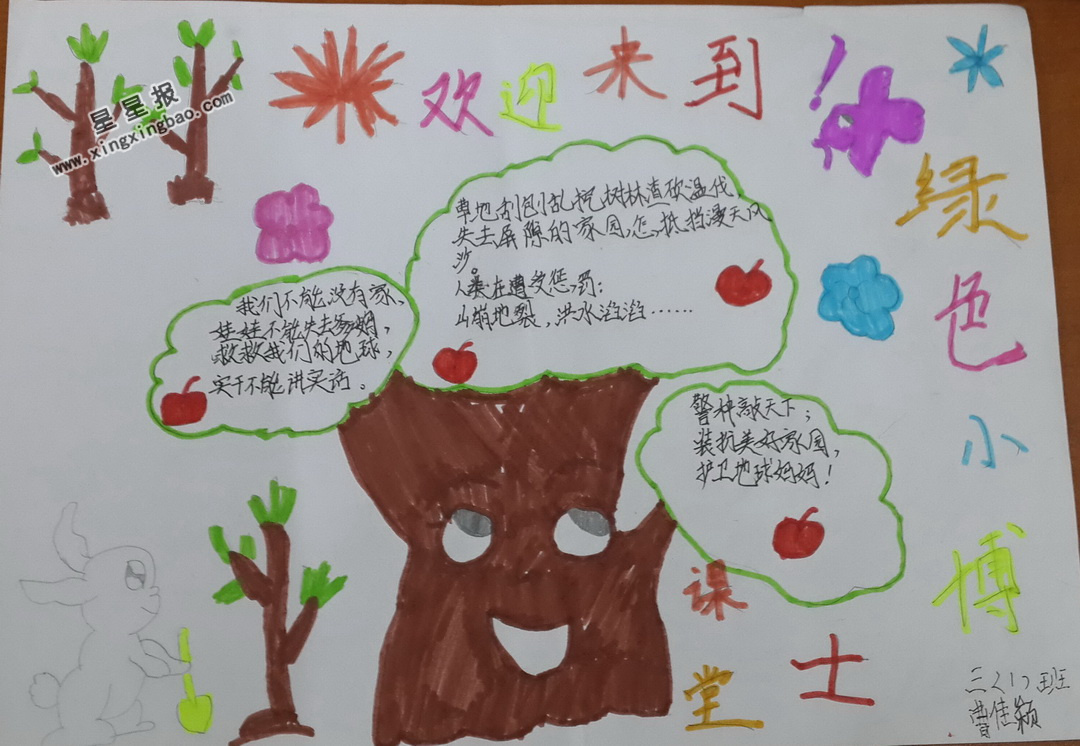 星星报
www.xingxingbao.com
欢迎来到
绿色小博士课堂
草地刮刨乱挖,树林直砍滥伐
失去屏障的家园,怎,抵挡漫天风
沙。
人类在遭受惩罚:
山崩地裂,洪水滔滔……
我们不能没有家、
娃娃不能失去妈妈,
救救我们的地球,
实干不能讲实话。
警钟敲天下;
装抗美好家园,
护卫地球妈妈!
三(1)班
曹佳颖